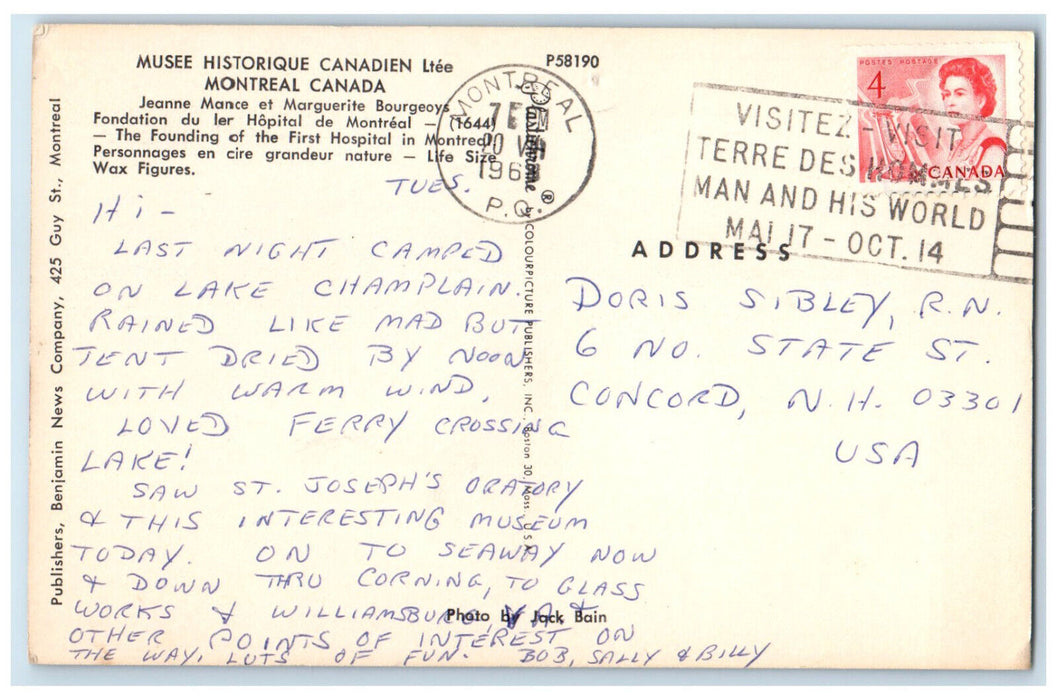 MUSEE HISTORIQUE CANADIEN Ltée
MONTREAL CANADA
Jeanne Mance et Marguerite Bourgeoys
Fondation du ler Hôpital de Montréal — (1644)
— The Founding of the First Hospital in Montreal.
Personnages en cire grandeur nature — Life Size
Wax Figures.
P58190
MONTREAL
P.Q.
POSTES POSTAGE
4
CANADA
VISITEZ - VISIT
TERRE DES HOMMES
MAN AND HIS WORLD
MAI 17 - OCT. 14
TUES.
HI -
LAST NIGHT CAMPED
ON LAKE CHAMPLAIN.
RAINED LIKE MAD BUT
TENT DRIED BY NOON
WITH WARM WIND.
LOVED FERRY CROSSING
LAKE!
SAW ST. JOSEPH'S ORATORY
& THIS INTERESTING MUSEUM
TODAY. ON TO SEAWAY NOW
& DOWN THRU CORNING, TO GLASS
WORKS & WILLIAMSBURG, VA &
OTHER POINTS OF INTEREST ON
THE WAY. LOTS OF FUN. BOB, SALLY & BILLY
ADDRESS
DORIS SIBLEY, R.N.
6 NO. STATE ST.
CONCORD, N.H. 03301
USA
Photo by Jack Bain
Publishers, Benjamin News Company, 425 Guy St., Montreal
Plastichrome ® by COLOURPICTURE PUBLISHERS, INC., Boston 30, Mass. U.S.A.